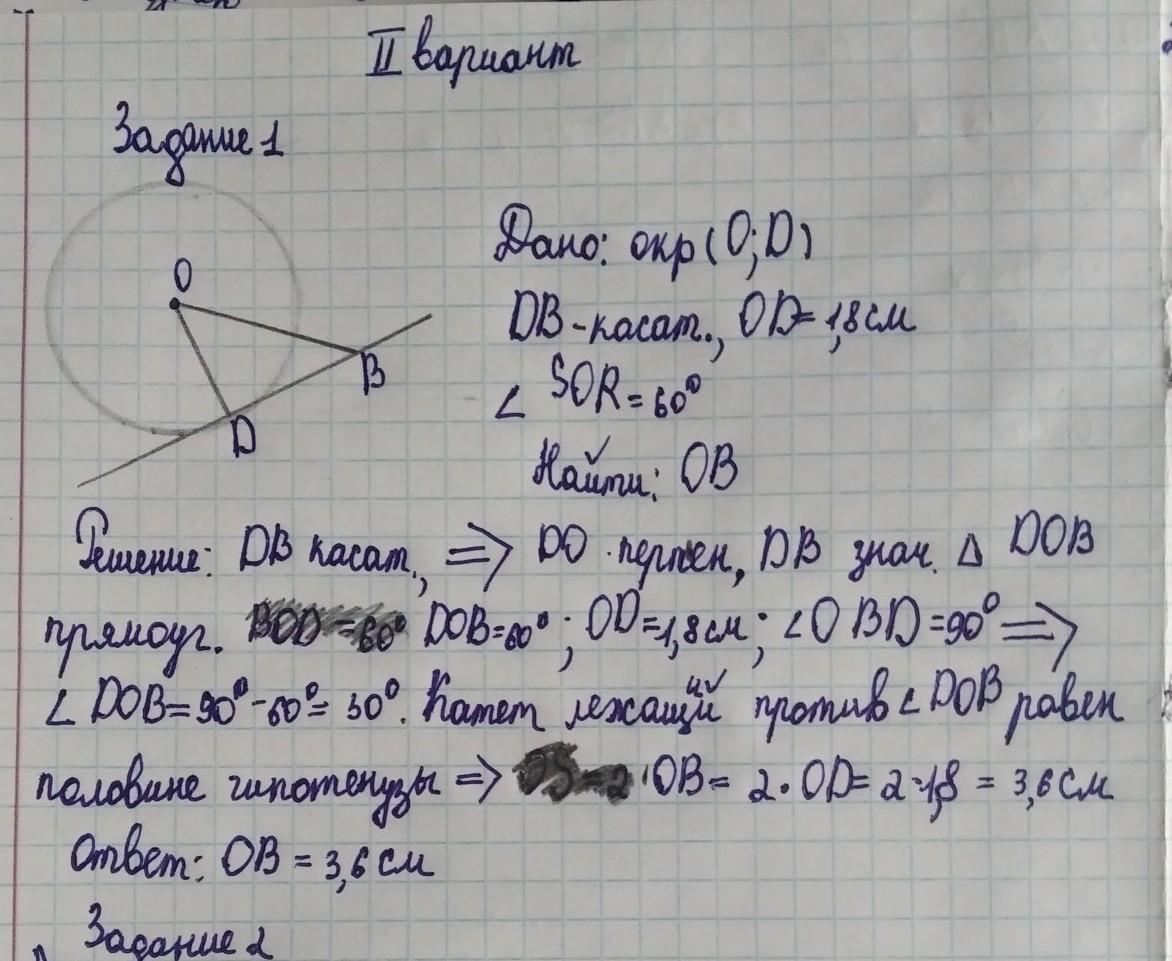 II вариант
Задание 1
O
B
D
Дано: окр (O; D)
DB-касат., OD=1,8 см
∠ SOR = 60°
Найти: OB
Решение: DB касат., => DO перпен, DB знач. Δ DOB
прямоуг. BOD = 60° DOB=60°; OD=1,8 см; ∠OBD =90° =>
∠ DOB=90°-60°= 30°. Катет лежащий против ∠ DOB равен
половине гипотенузы => OB= 2·OD= 2·1,8 = 3,6 см
Ответ: OB = 3,6 см
Задание 2